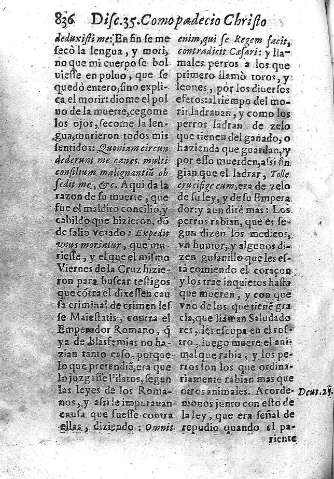 836 Disc. 35. Como padecio Christo
deduxisti me: En fin se me
secò la lengua, y mori,
no que mi cuerpo se bol
uiesse en poluo, que se
quedò entero, sino explica
el morir: diome el pol
uo de la muerte, cegome
los ojos, secome la len
gua, murieron todos mis
sentidos: Quoniam circun
dederunt me canes multi
consilium malignantiũ ob
sedit me, &c. Aqui da la
razon de su muerte, que
fue el maldito concilio, y
cabildo que hizieron, dõ
de salio vetado: Expedit
vnus moriatur, que mu
riesse, y el que el mismo
Viernes de la Cruz hizie
ron para buscar testigos
que cõtra el dixessen cau
sa criminal de crimen les
se Maiestatis, contra el
Emperador Romano, q̃
ya de blasfemias no ha
zian tanto caso, porque
lo que pretendiã, era que
lo juzgasse Pilatos, segun
las leyes de los Roma
nos, y assi le imputauan
causa que fuesse contra
ellas, diziendo: Omnis
enim, qui se Regem facit,
contradicit Cæsari: y lla-
males perros a los que
primero llamò toros, y
leones, por los diuersos
efetos: al tiempo del mo
rir, ladrauan, y como los
perros ladran de zelo
que tienen del ganado, o
hazienda que guardan, y
por esso muerden, assi fin
gian que el ladrar, Tolle
crucifige eum, era de zelo
de su ley, y de su Empera
dor: y aun diré mas: Los
perros rabian, que es se-
gun dizen los medicos,
vn humor, y algunos di
zen gusanillo que les es-
ta comiendo el coraçon
y los trae inquietos hasta
que mueren, y con que
vno de los que tienẽ gra
cia, que llaman Saludado
res, les escupa en el ros-
tro, luego muere el ani
mal que rabia, y los per
ros son los que ordina-
riamente rabian mas que
otros animales. Acorde-
monos junto con esto de
la ley, que era señal de
repudio quando el pa-
riente
Deut. 25.